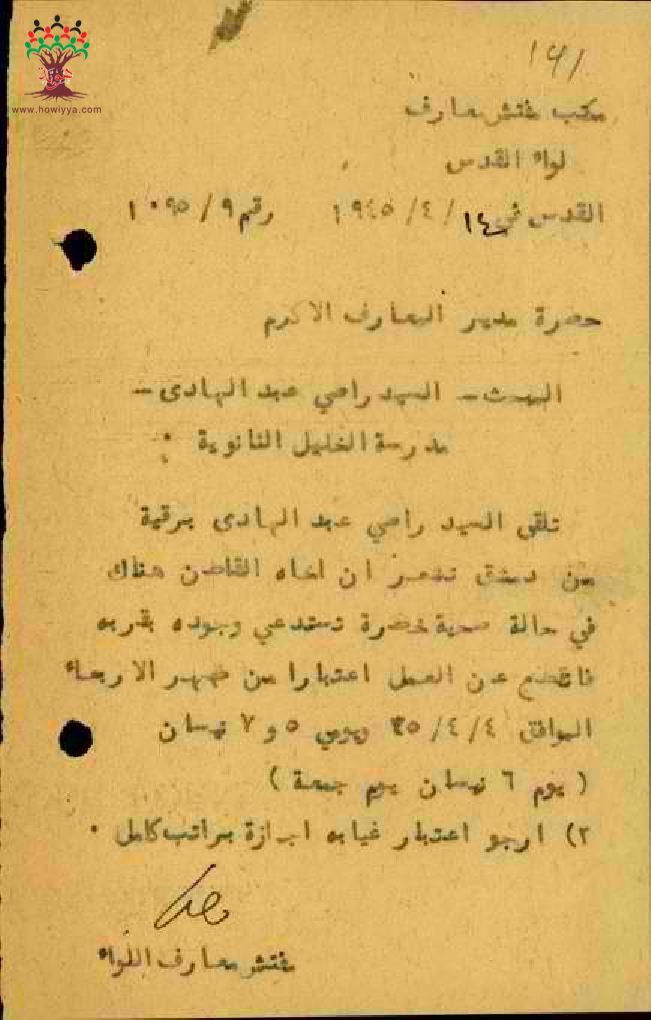 ١٩١
www.howiyya.com
مكتب مفتش معارف
لواء القدس
القدس في ١٤/ ٤/ ١٩٤٥ رقم ٩/ ١٠٩٥
حضرة مدير المعارف الاكرم
البحث - السيد راضي عبد الهادى -
مدرسة الخليل الثانوية :
تلقى السيد راضي عبد الهادى برقية
من دمشق تشعر ان اخاه القاطن هناك
في حالة صحية خطرة تستدعي وجوده بقربه
فانقطع عن العمل اعتبارا من ظهر الاربعاء
الموافق ٤/ ٤/ ٤٥ ويومي ٥ و ٧ نيسان
( يوم ٦ نيسان يوم جمعة )
٢) ارجو اعتبار غيابه اجازة براتب كامل .
مفتش معارف اللواء